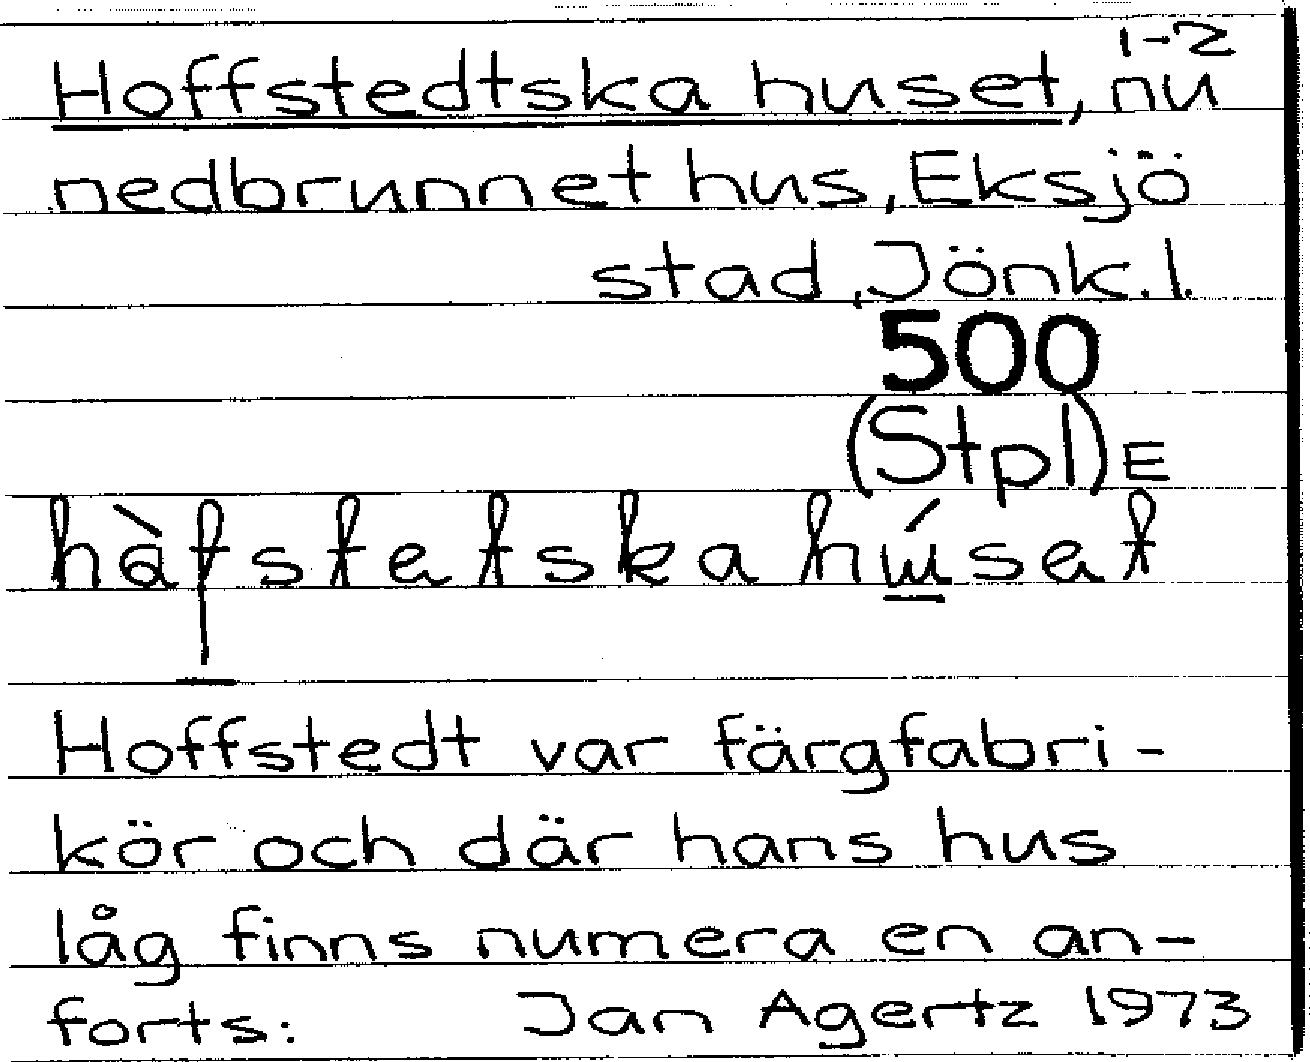 1-2
Hoffstedtska huset, nu
nedbrunnet hus, Eksjö
stad, Jönk. l.
500
(Stpl) E
Hoffstedt var färgfabri-
kör och där hans hus
låg finns numera en an-
forts: Jan Agertz 1973